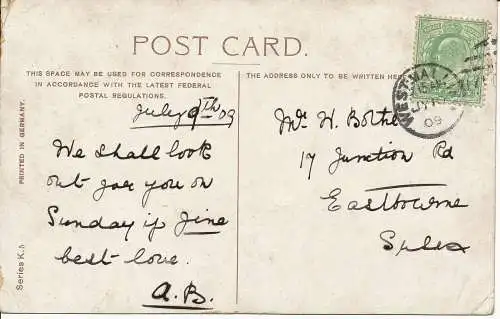 POST CARD.
THIS SPACE MAY BE USED FOR CORRESPONDENCE
IN ACCORDANCE WITH THE LATEST FEDERAL
POSTAL REGULATIONS.
THE ADDRESS ONLY TO BE WRITTEN HERE
July 9th 09
We shall look
out for you on
Sunday if fine
best love.
A.B.
Mr W.
17 Junction Rd
Eastbourne
PRINTED IN GERMANY.
Series K.
09